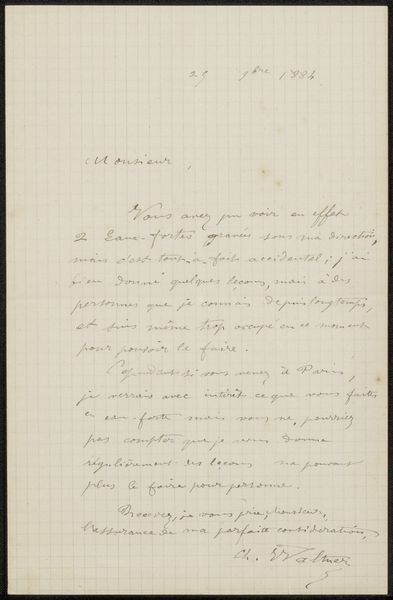 29 9bre 1884
Monsieur,
Vous avez pu voir en effet
2 Eaux-fortes gravées sous ma direction,
mais c'est tout-à-fait accidentel ; j'ai
bien donné quelques leçons, mais à des
personnes que je connais depuis longtemps,
et suis même trop occupé en ce moment
pour pouvoir le faire.
Cependant si vous venez à Paris,
je verrais avec intérêt ce que vous faites
en eau-forte mais vous ne pourriez
pas compter que je vous donne
régulièrement des leçons ne pouvant
plus le faire pour personne.
Recevez, je vous prie, Monsieur,
l'assurance de ma parfaite considération,
Ch. Waltner